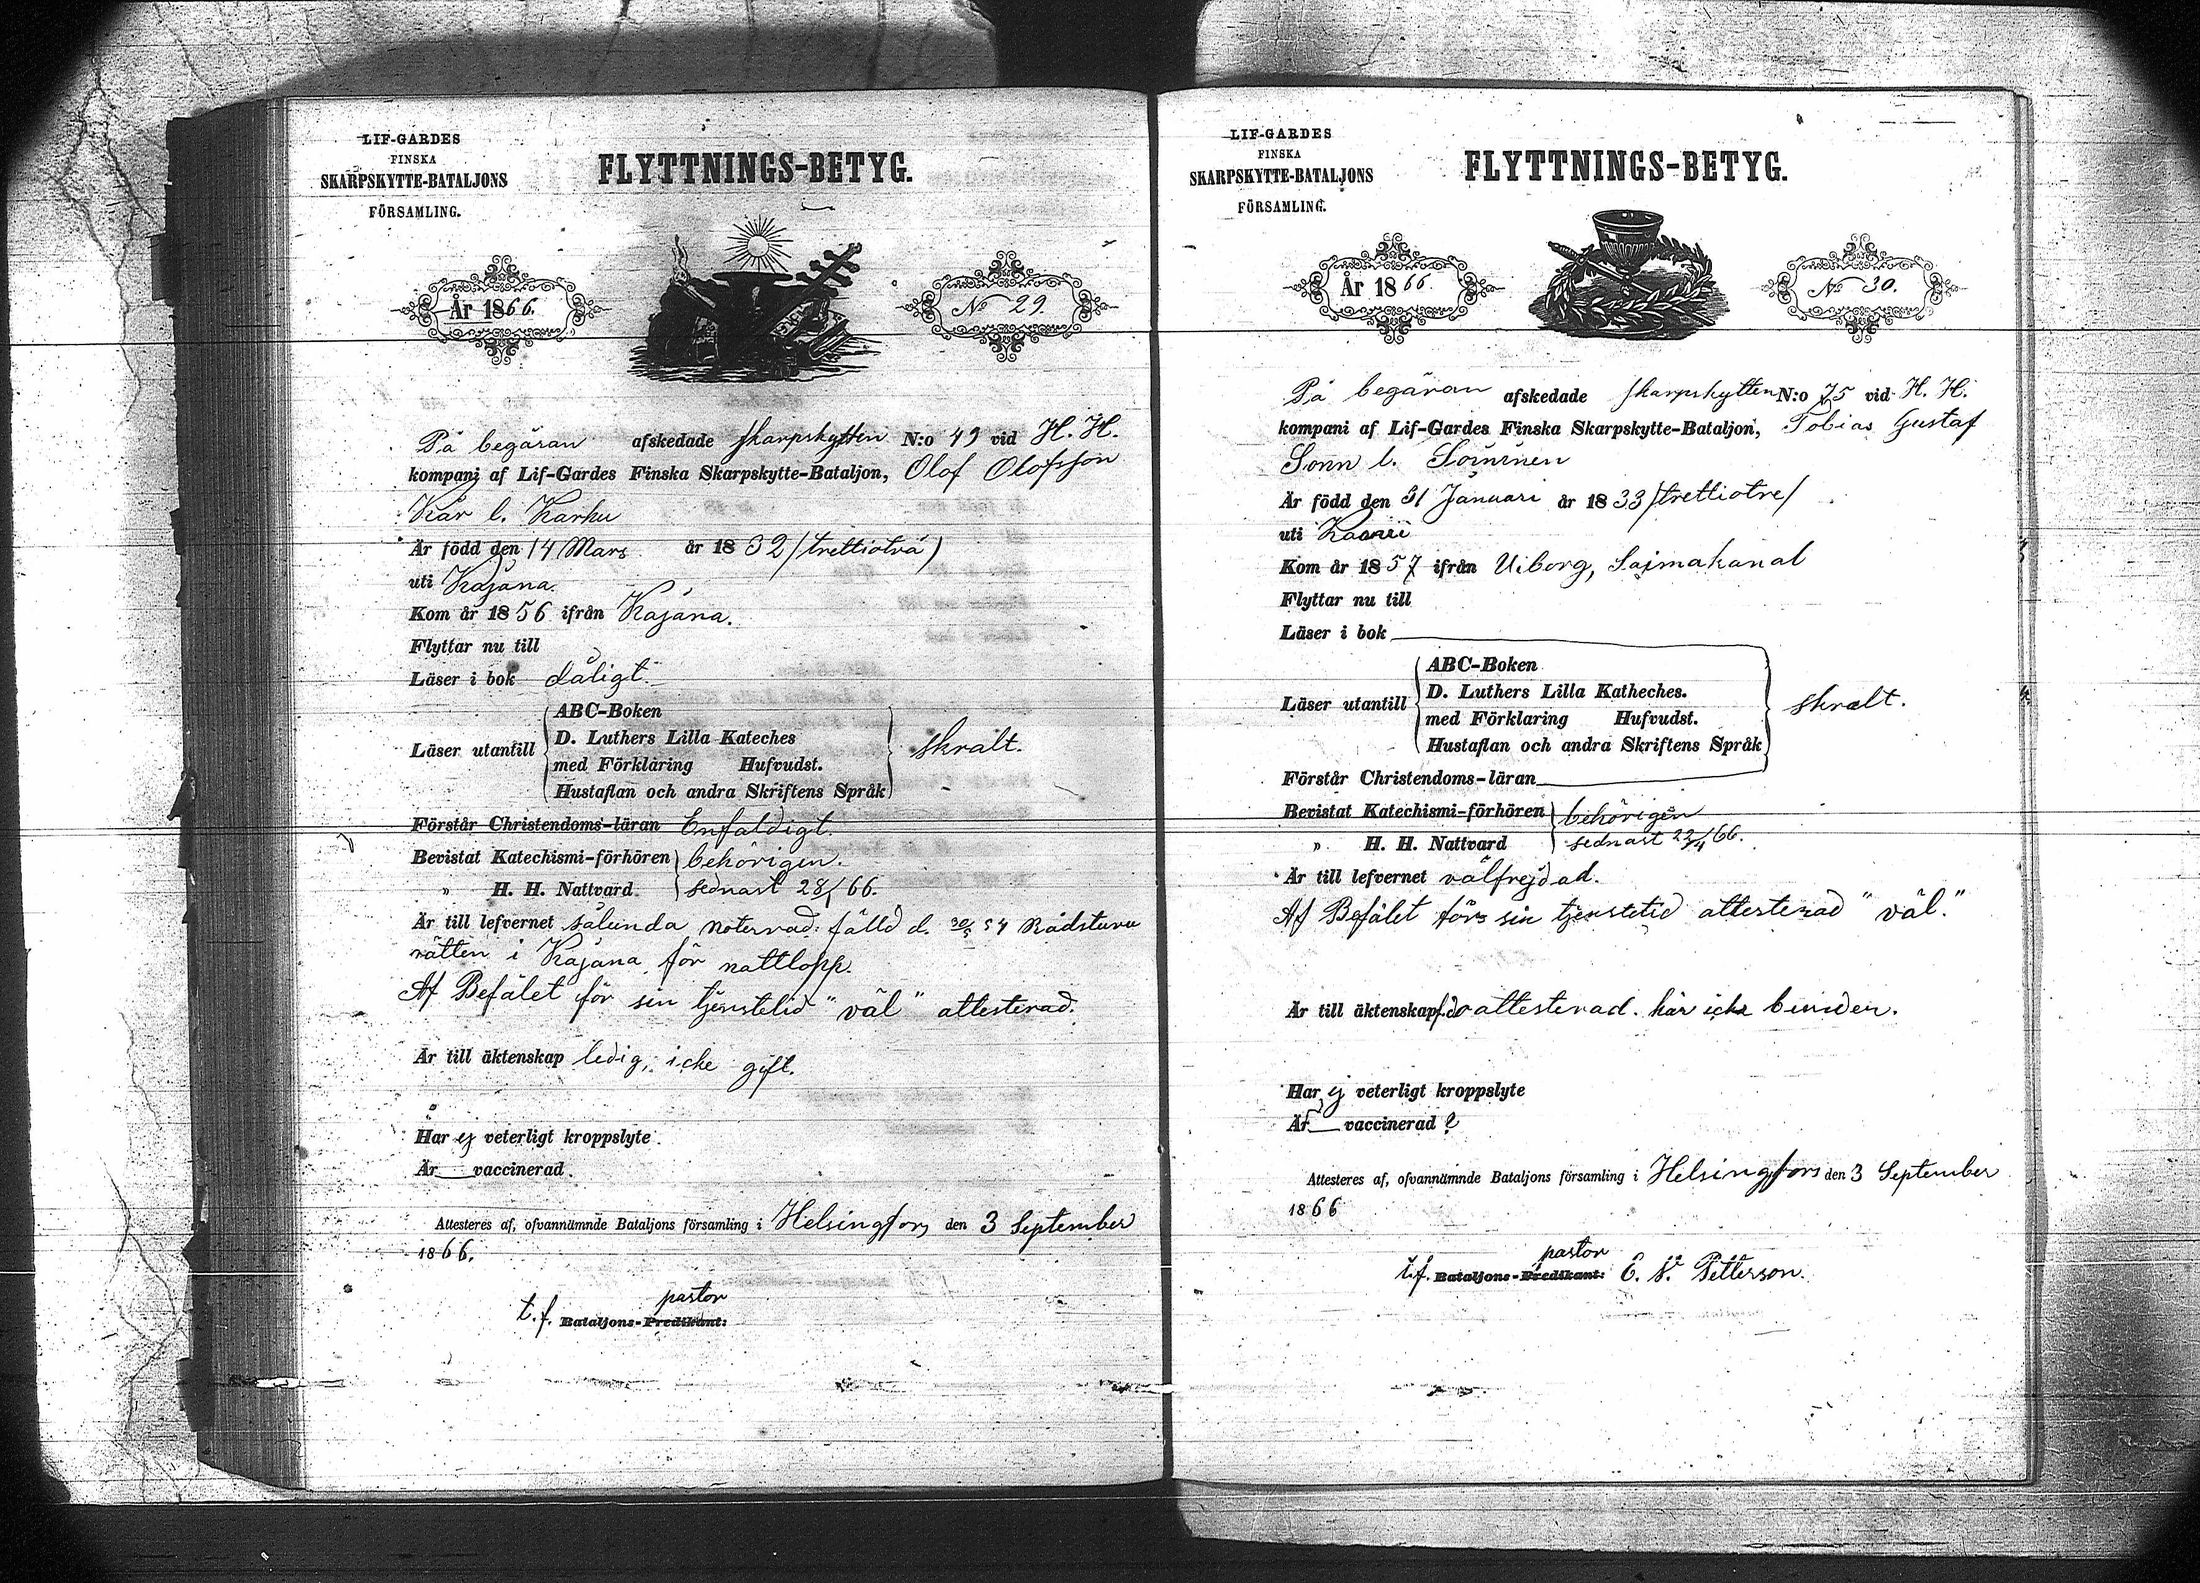 LIF-GARDES
FINSKA
SKARPSKYTTE-BATALJONS
FÖRSAMLING.
FLYTTNINGS-BETYG.
År 1866.
No 29.
På begäran afskedade skarpskytten N:o 49 vid H. H.
kompani af Lif-Gardes Finska Skarpskytte-Bataljon, Olof Olofsson
Kär l. Karhu
Är född den 14 Mars år 1832 (trettiotvå)
uti Kajana.
Kom år 1856 ifrån Kajana.
Flyttar nu till
Läser i bok dåligt.
ABC-Boken
D. Luthers Lilla Kateches
Läser utantill
med Förklaring Hufvudst.
skralt.
Hustaflan och andra Skriftens Språk
Förstår Christendoms-läran Enfaldigt.
Bevistat Katechismi-förhören behörigen.
" H. H. Nattvard sednast 28/1 66.
Är till lefvernet sålunda noterad: fälld d. 30/5 54 Rådstuvu
rätten i Kajana för nattlopp.
Af Befälet för sin tjenstetid "väl" attesterad.
Är till äktenskap ledig, icke gift.
Har ej veterligt kroppslyte.
Är vaccinerad.
Attesteres af, ofvannämnde Bataljons församling i Helsingfors den 3 September
1866.
pastor
t.f. Bataljons-Predikant:
LIF-GARDES
FINSKA
SKARPSKYTTE-BATALJONS
FÖRSAMLING.
FLYTTNINGS-BETYG.
År 1866.
No 30.
På begäran afskedade skarpskytten N:o 75 vid H. H.
kompani af Lif-Gardes Finska Skarpskytte-Bataljon, Tobias Gustaf
Sonn l. Soininen
Är född den 31 Januari år 1833 /trettiotre/
uti Kaavi
Kom år 1857 ifrån Wiborg, Saimakanal
Flyttar nu till
Läser i bok
ABC-Boken
D. Luthers Lilla Katheches.
Läser utantill
med Förklaring Hufvudst.
skralt.
Hustaflan och andra Skriftens Språk
Förstår Christendoms-läran
Bevistat Katechismi-förhören behörigen
" H. H. Nattvard sednast 22/4 66.
Är till lefvernet välfrejdad.
Af Befälet förs sin tjenstetid attesterad "väl."
Är till äktenskap attesterad. här icke bunden.
Har ej veterligt kroppslyte
Är vaccinerad?
Attesteres af, ofvannämnde Bataljons församling i Helsingfors den 3 September
1866
pastor
t.f. Bataljons-Predikant: E. V. Petterson.